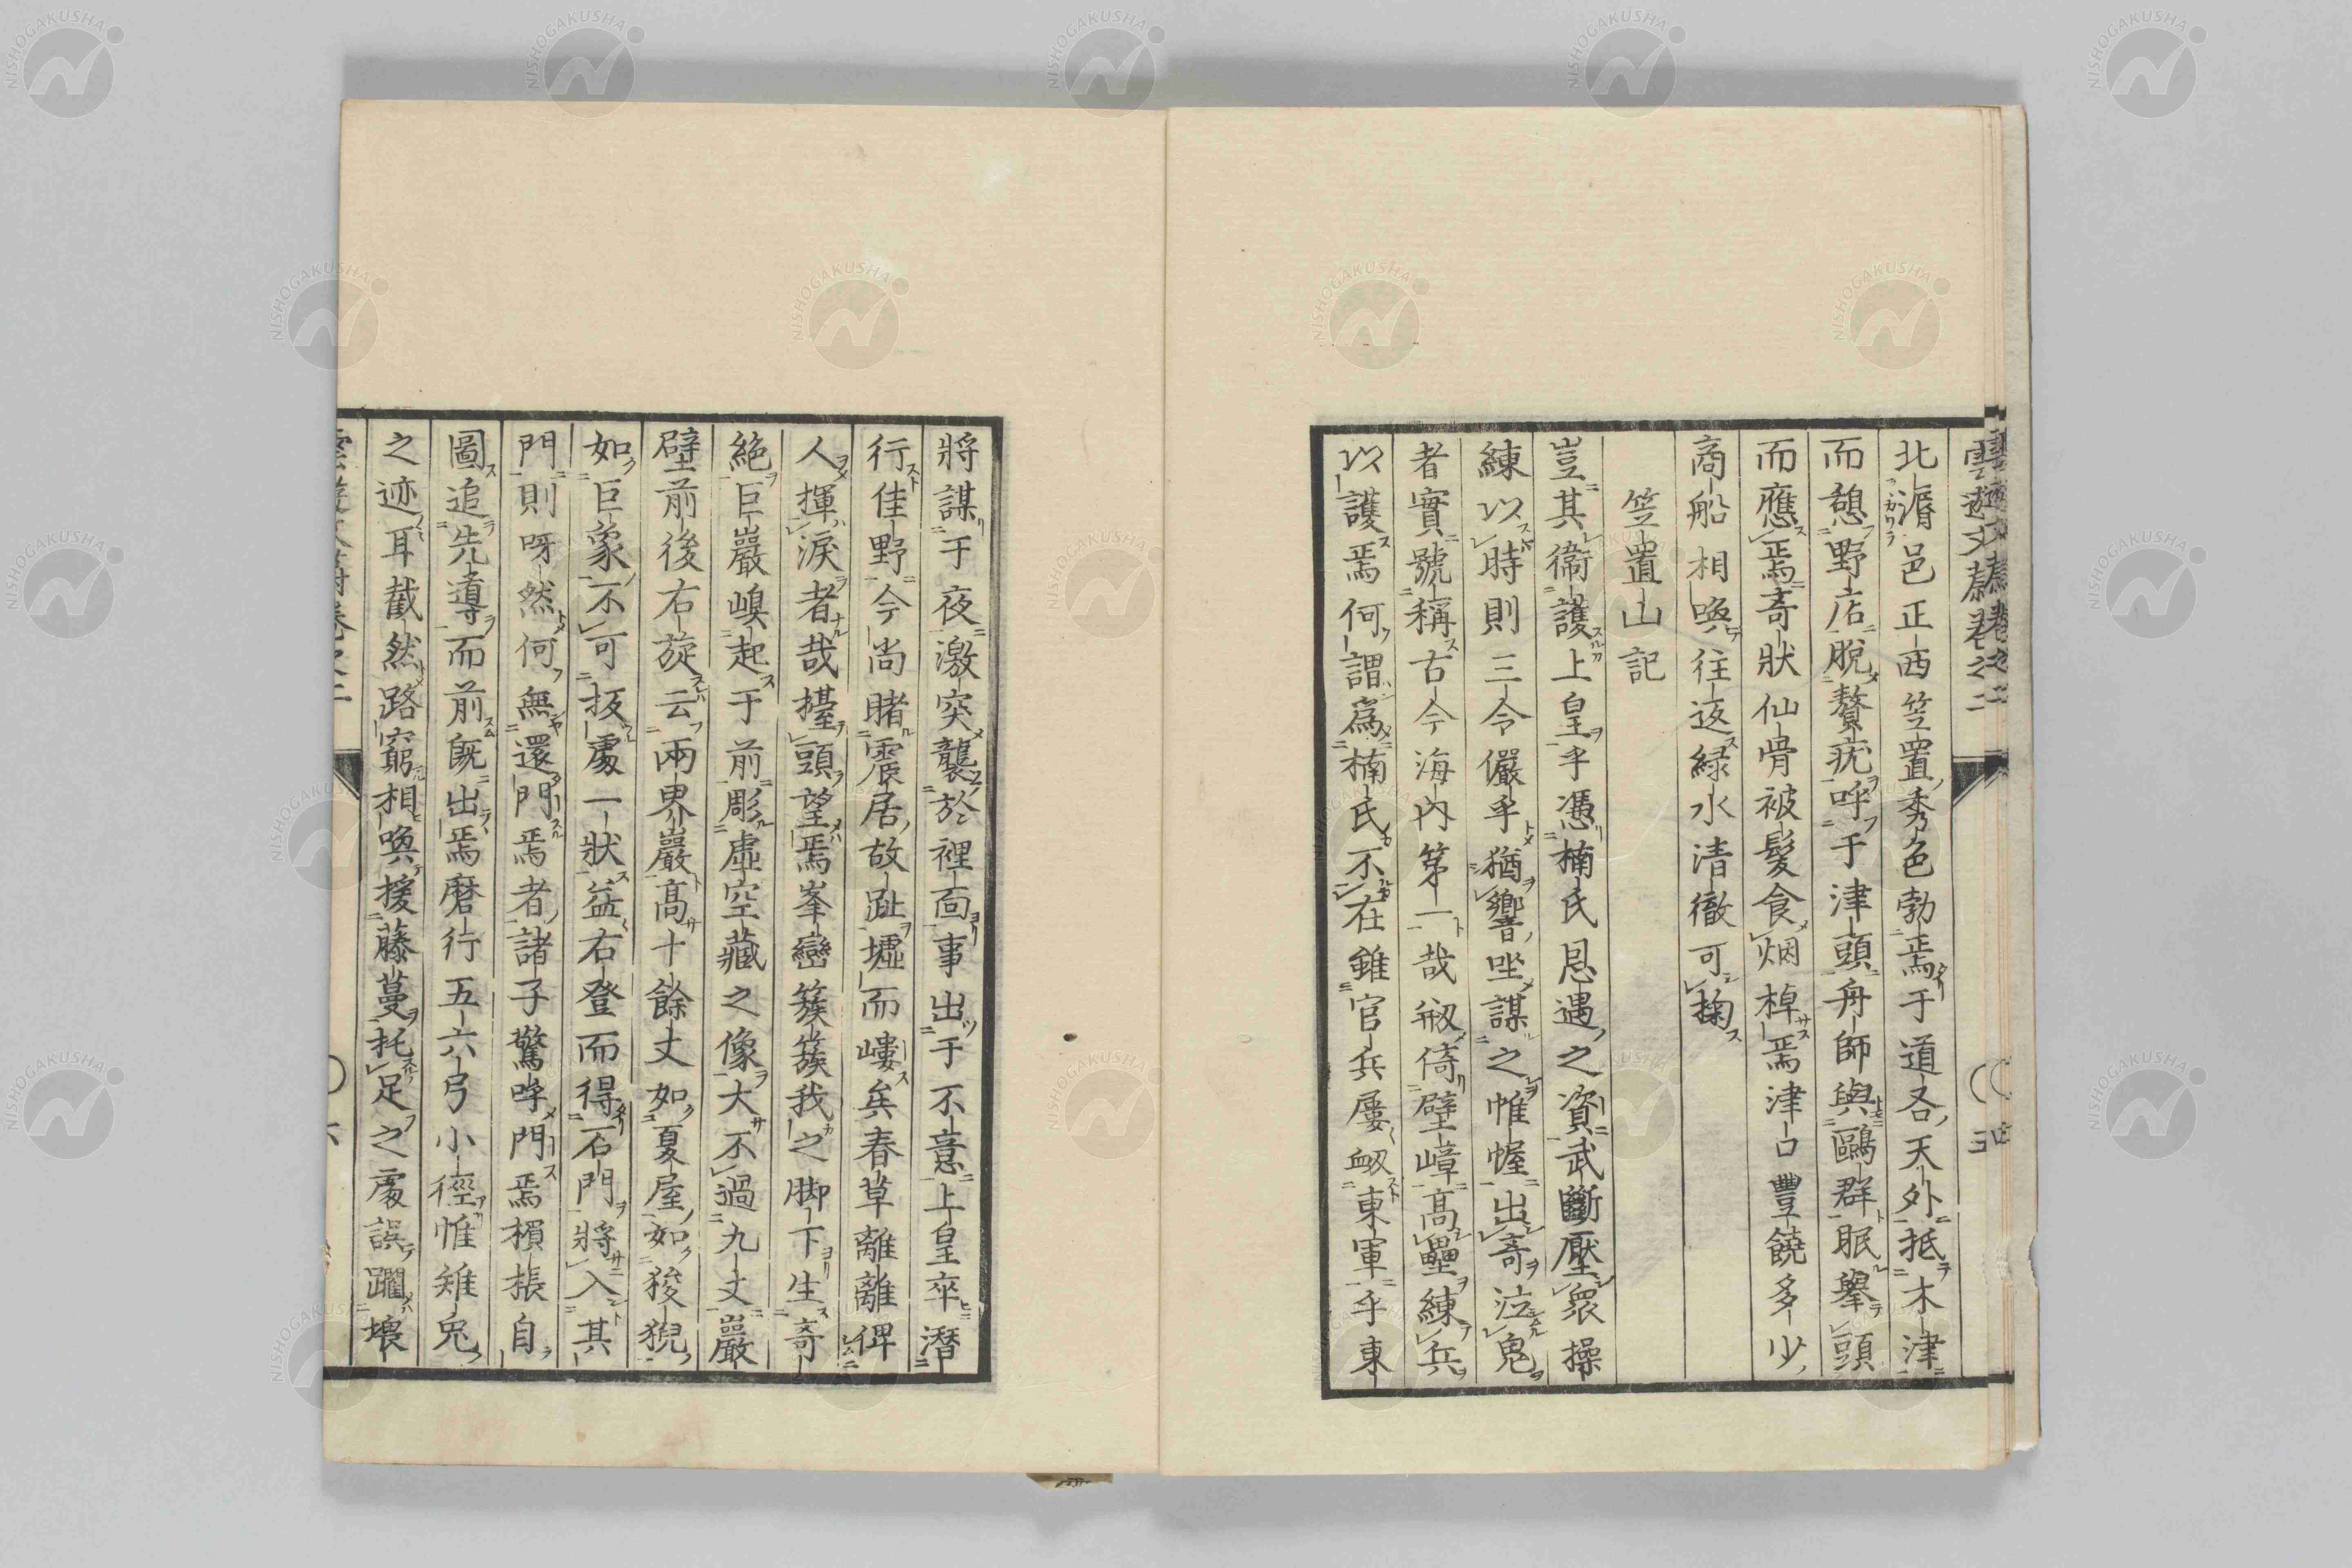 北漘邑正西笠置秀色勃焉于道各天外抵木津
而憩野店脫贅疣呼于津頭舟師與鷗群眠舉頭
而應焉奇狀仙骨被髮食烟棹焉津口豐饒多少
商船相喚往返緑水清徹可掬
笠置山記
豈其衞護上皇乎憑楠氏恩遇之資武斷壓衆操
練以時則三令儼乎猶響坐謀之帷幄出奇泣鬼
者實號稱古今海内第一哉剱倚壁嶂高壘練兵
以護焉何謂為楠氏不在錐官兵屢衂東軍乎東
將謀于夜激突襲於裡面事出于不意上皇卒潛
行佳野今尚睹震居故趾墟而嶁矣春草離離俾
人揮淚者哉擡頭望焉峯巒簇簇我之脚下生奇
絶巨巖嵲起于前彫虛空藏之像大不過九丈巖
壁前後右旋云兩界巖高十餘丈如夏屋如狻猊
如巨象不可扳處一狀益右登而得石門將入其
門則呀然何無還門焉者諸子驚呼門焉榠棖自
圖追先導而前既出焉磨行五六弓小徑惟雉兎
之迹耳截然路窮相喚援藤蔓托足之處誤躙壞
NISHOGAKUSHA